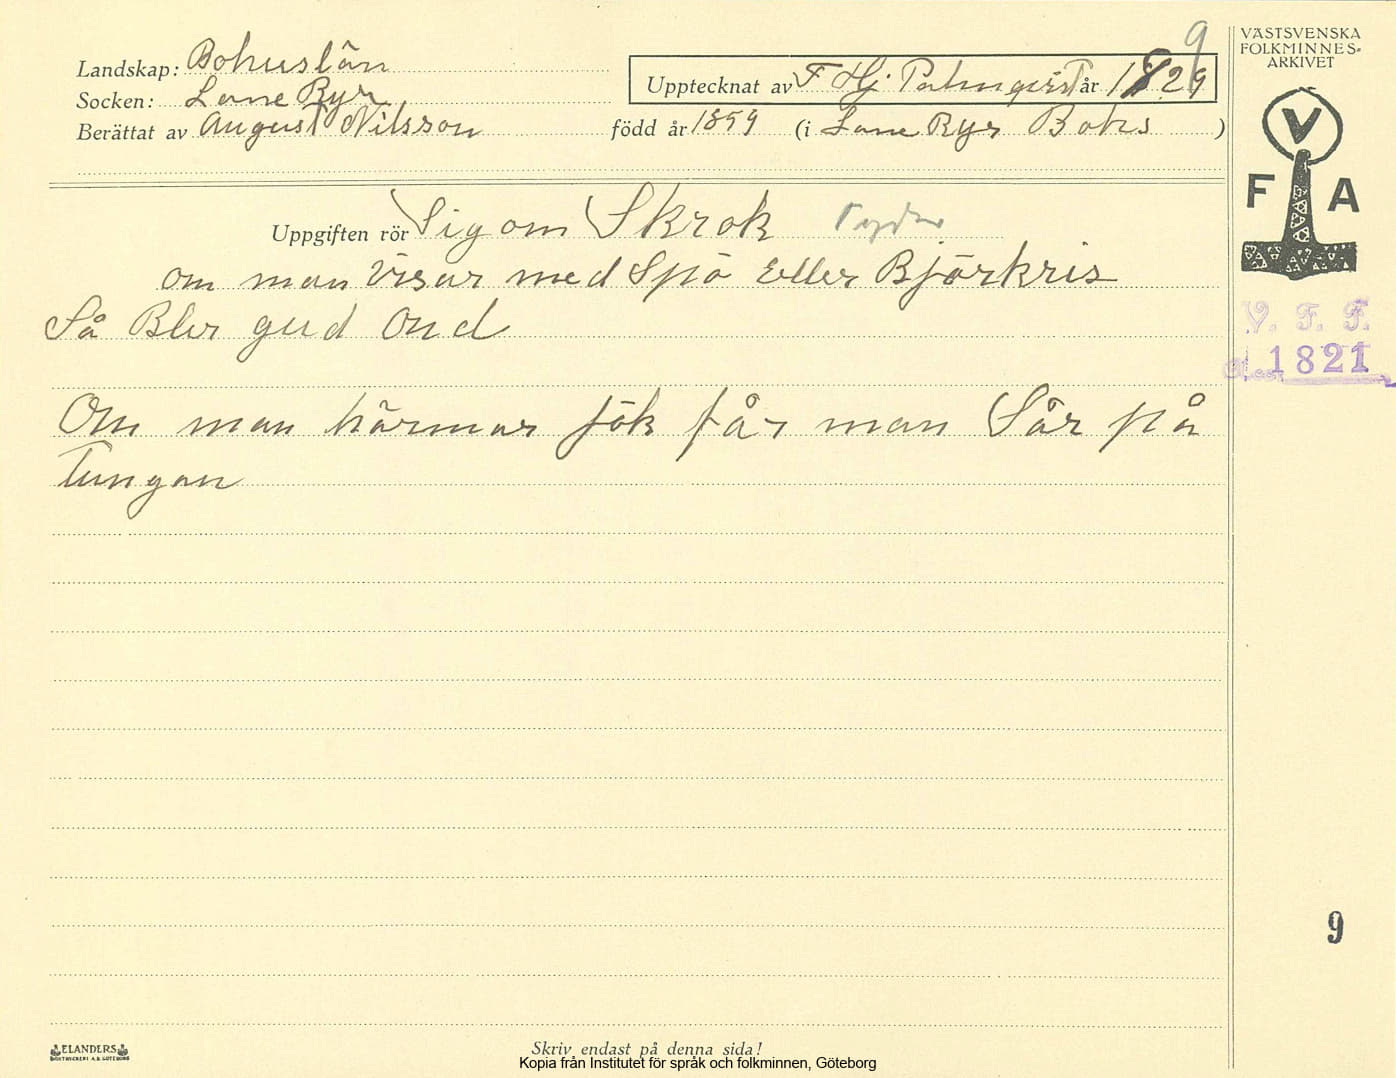 Landskap: Bohuslän
Socken: Lane Ryr
Berättat av August Nilsson född år 1859 (i Lane Ryr Bohs )
Upptecknat av F Hj. Palmqvist år 1829
9
VÄSTSVENSKA
FOLKMINNES-
ARKIVET
V
F A
V. F. F.
1821
Uppgiften rör Sig om Skrok
om man Visar med Spö Eller Björkris
Så Blir gud Ond
Om man härmar Jök får man Sår på
Tungan
9
ELANDERS
BOKTRYCKERI A.B. GÖTEBORG
Skriv endast på denna sida!
Kopia från Institutet för språk och folkminnen, Göteborg